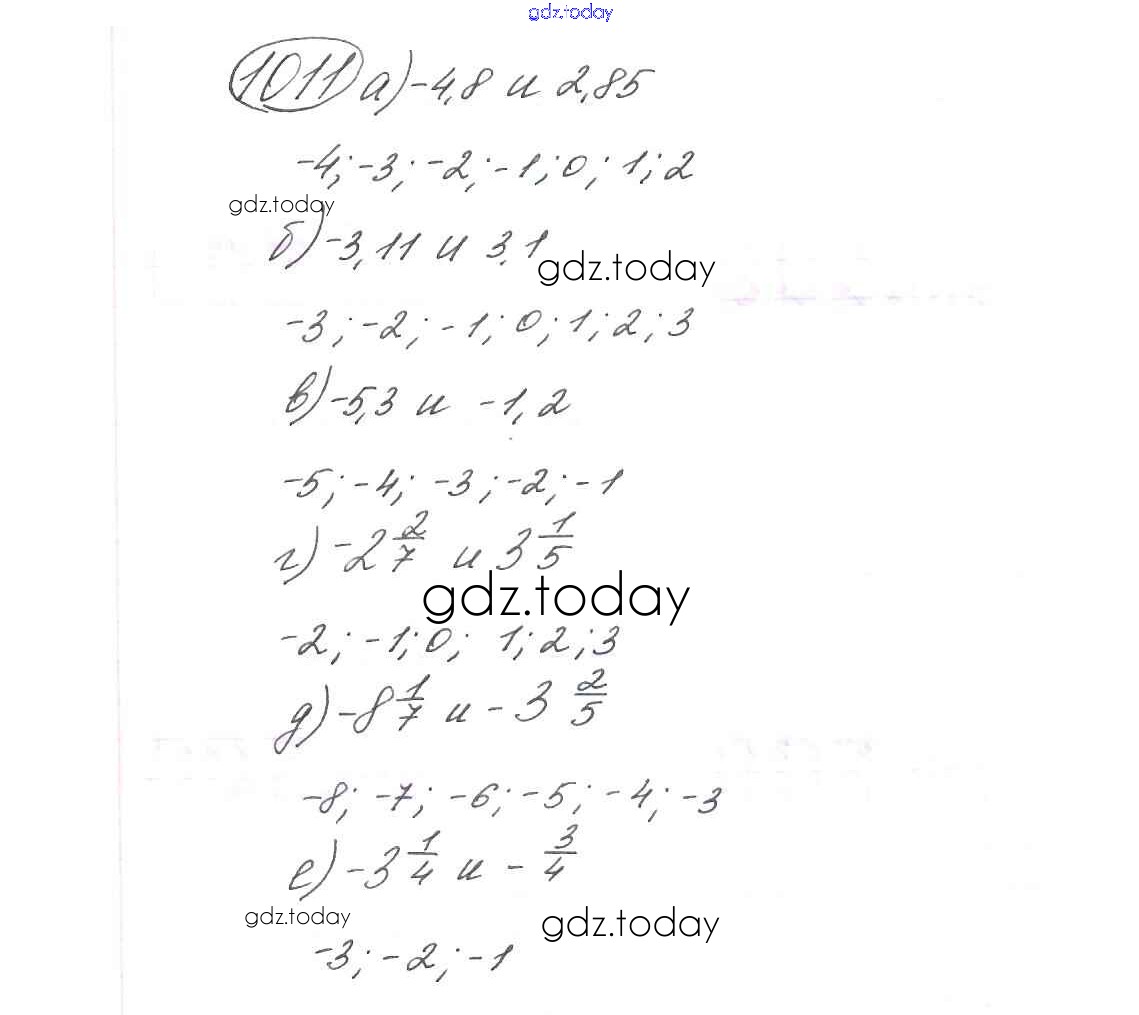 gdz.today
1011 а) -4,8 и 2,85
-4; -3; -2; -1; 0; 1; 2
gdz.today
б) -3,11 и 3,1
gdz.today
-3; -2; -1; 0; 1; 2; 3
в) -5,3 и -1,2
-5; -4; -3; -2; -1
г) -2 2/7 и 3 1/5
gdz.today
-2; -1; 0; 1; 2; 3
д) -8 1/7 и -3 2/5
-8; -7; -6; -5; -4; -3
е) -3 1/4 и - 3/4
gdz.today
gdz.today
-3; -2; -1